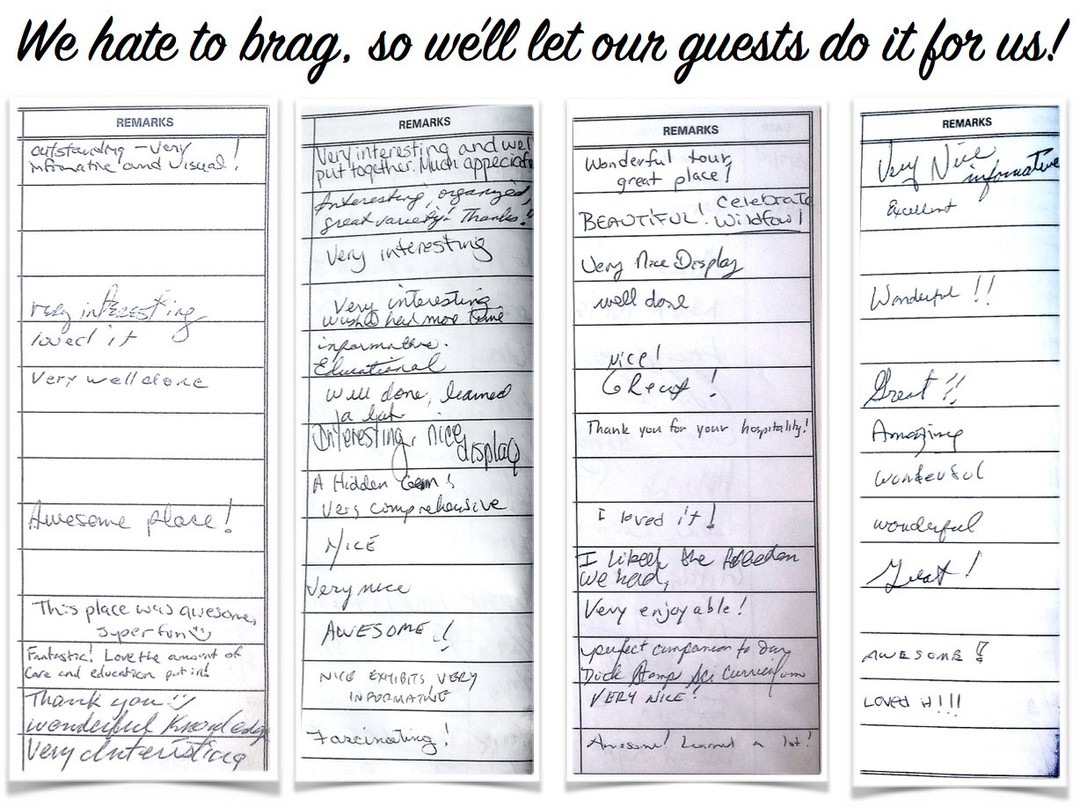 We hate to brag, so we'll let our guests do it for us!
REMARKS
outstanding - very
informative and visual!
very interesting
loved it
Very well done
Awesome place!
This place was awesome,
super fun
Fantastic! Love the amount of
care and education put in!
Thank you
wonderful Knowledge
Very interesting
REMARKS
Very interesting and well
put together. Much appreciate
Interesting, organized,
great variety! Thanks!!
Very interesting
Very interesting
wish I had more time
informative.
Educational
Well done, learned
a lot
Interesting, nice
display
A Hidden Gem!
Very comprehensive
NICE
Very nice
AWESOME!
NICE EXHIBITS VERY
INFORMATIVE
Fascinating!
REMARKS
Wonderful tour,
great place!
BEAUTIFUL! Celebrate
Wildfowl
Very Nice Display
well done
NICE!
Great!
Thank you for your hospitality!
I loved it!
I liked the freedom
we had,
Very enjoyable!
perfect companion to
Duck Stamp Sci Curriculum
VERY NICE!
Awesome! Learned a lot!
REMARKS
Very Nice
informative
Excellent
Wonderful!!
Great!!
Amazing
wonderful
wonderful
Great!
AWESOME!
LOVED it!!!